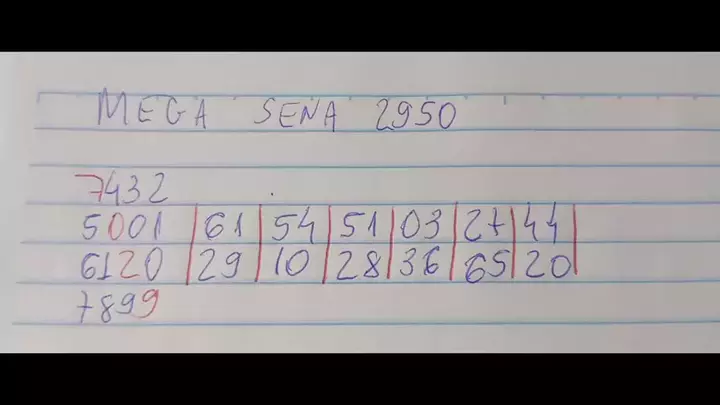 MEGA SENA 2950
7432
5001 | 61 | 54 | 51 | 03 | 27 | 44 |
6120 | 29 | 10 | 28 | 36 | 65 | 20 |
7899